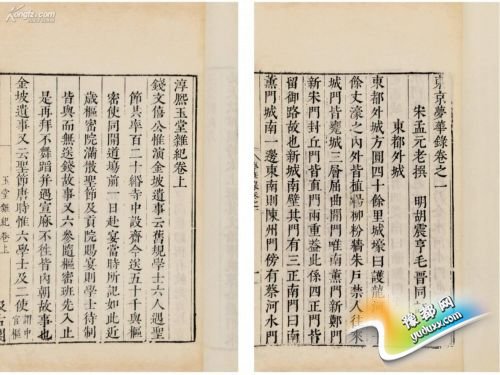 東京夢華錄卷之一
宋孟元老撰 明胡震亨毛晉同
東都外城
東都外城方圓四十餘里城壕曰護龍河
餘丈濠之內外皆植楊柳粉墻朱戸禁人往來
城門皆甕城三層屈曲開門唯南薰門新鄭門
新宋門封丘門皆直門兩重蓋此係四正門皆
留御路故也新城南壁其門有三正南門曰南
薰門城南一邊東南則陳州門傍有蔡河水門
淳熙玉堂雜紀卷上
錢文僖公惟演金坡遺事云舊規學士六人遇聖
節共率百二十緡寺中設齋今送五十千與樞
密使同開道場前一日赴宴當時所認如此近
歲樞密院滿散聖節及貢院賜宴則學士待制
皆與而無送錢故事又六參隨樞密班先入止
是再拜不舞蹈并遇宣麻不往皆內朝故事也
金坡遺事又云聖節唐時惟六學士及二使謂中官樞
玉堂雜紀卷上
Kongfz.com
豫都网